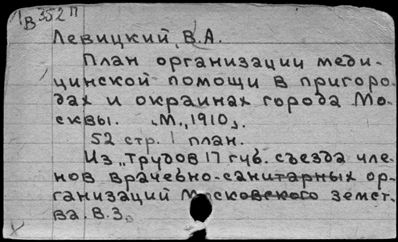 1В352П
Левицкий, В.А.
План организации меди-
цинской помощи в пригоро-
дах и окраинах города Мо-
сквы. „М., 1910„.
52 стр. 1 план.
Из „Трудов 17 губ. съезда чле-
нов врачебно-санитарных ор-
ганизаций Московского земст-
ва. В.3.